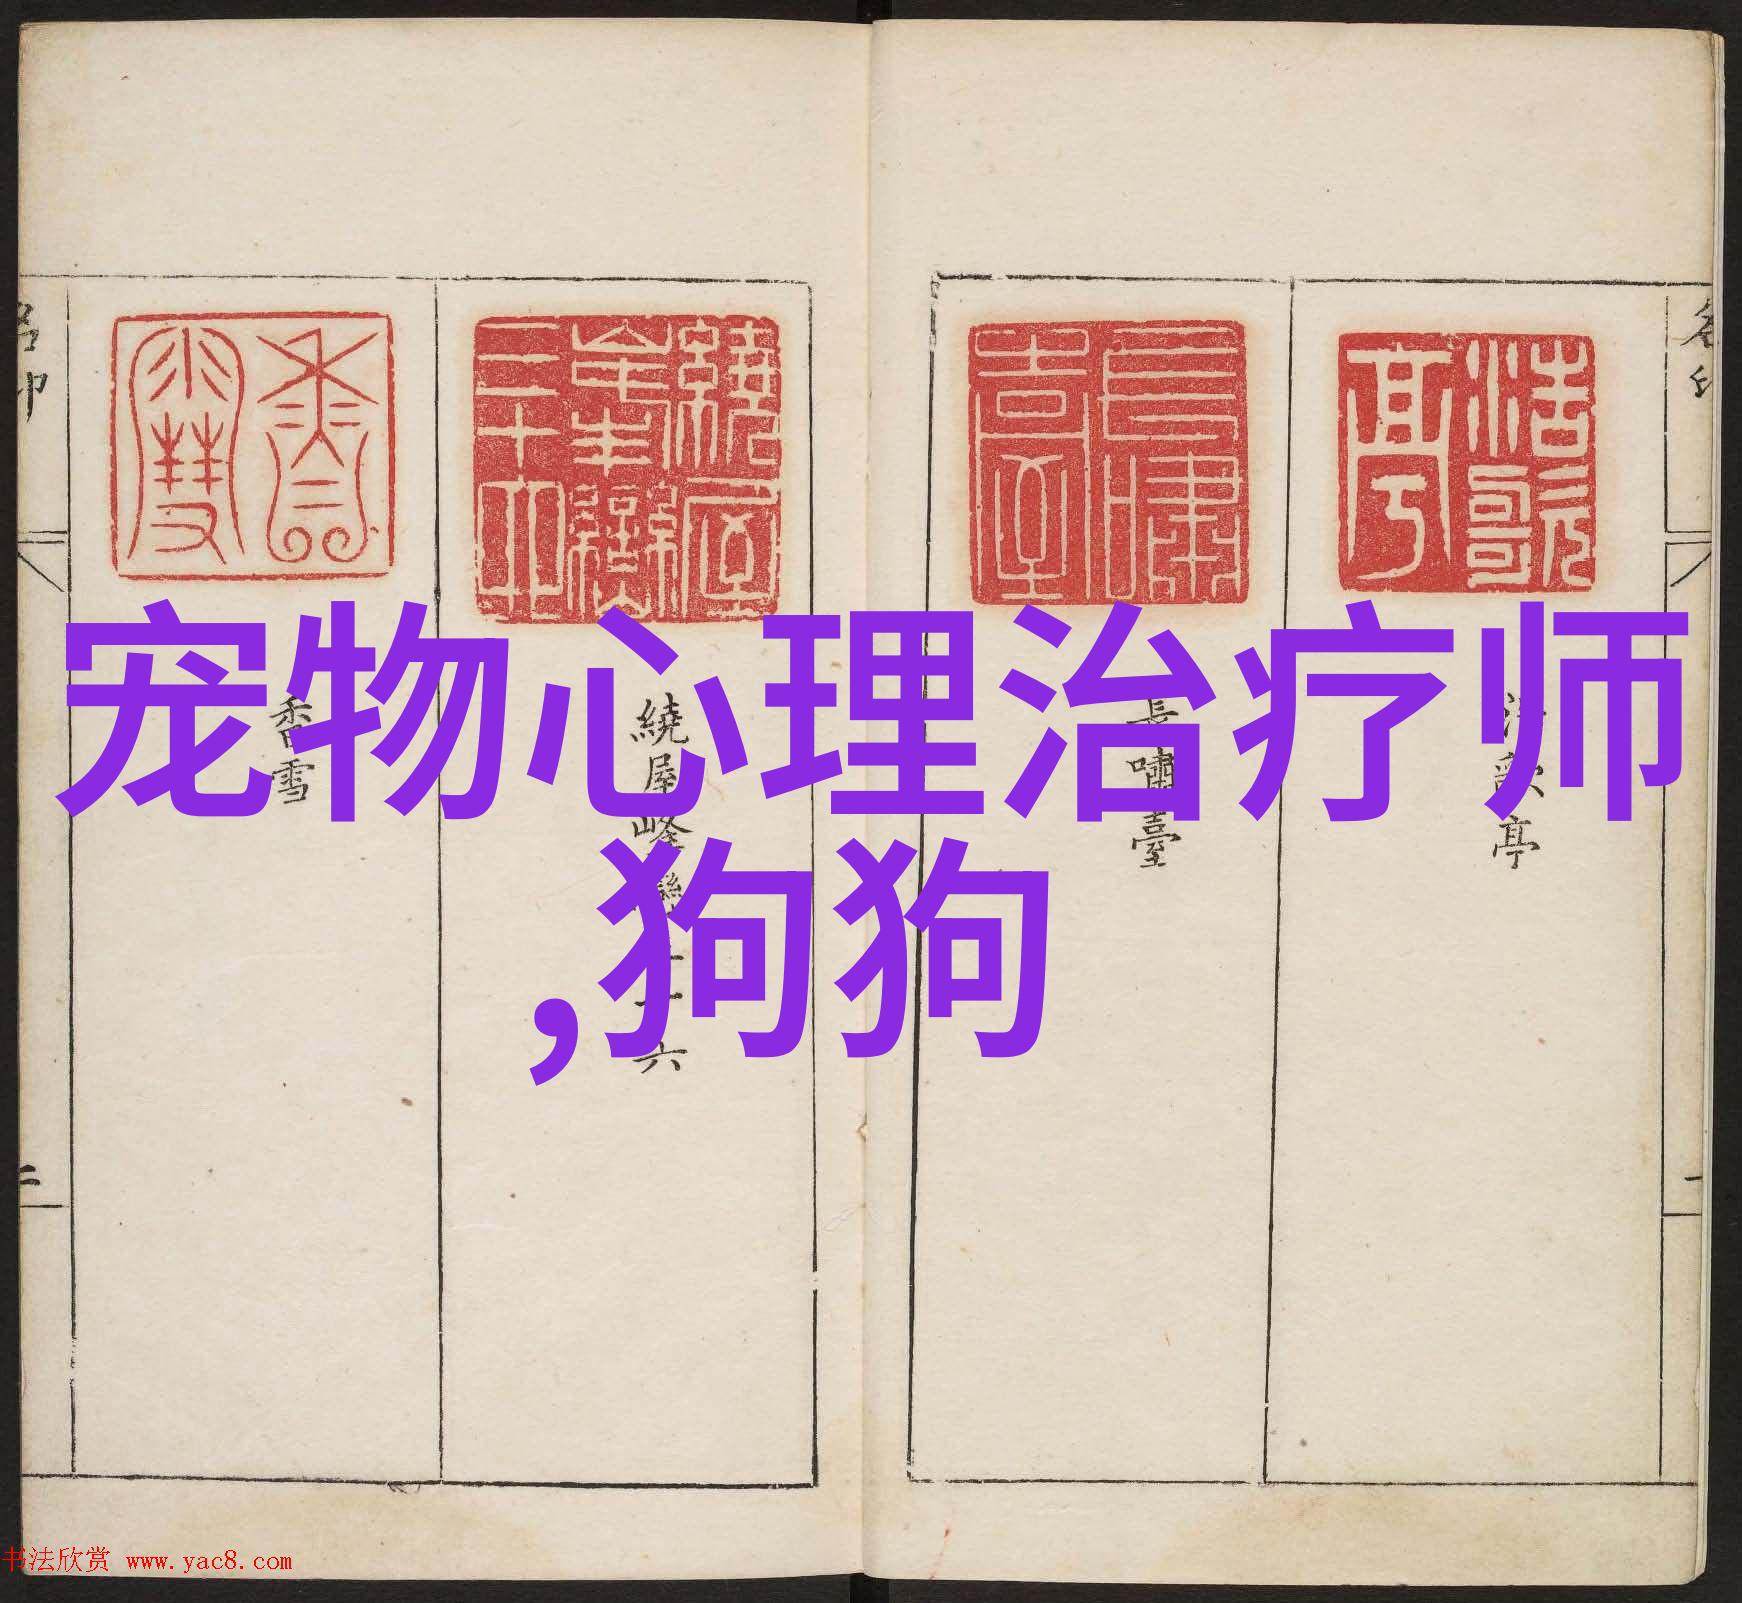 宠物心理治疗师
,狗狗
浩歌亭
長嘯臺
繞屋峰巒二十六
香雪
二
一
书法欣赏 www.yac8.com